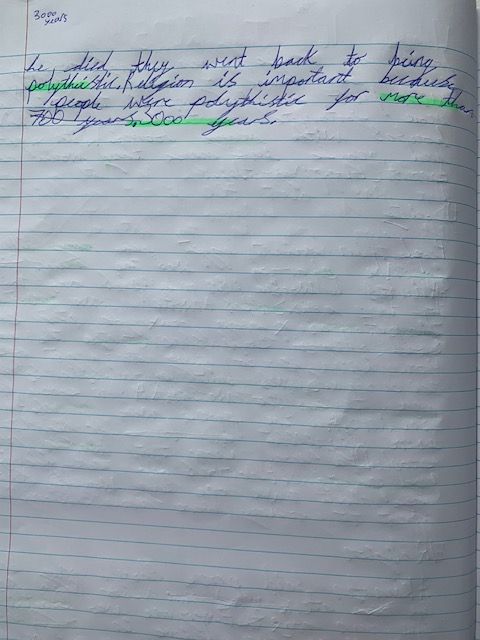 3000
years
he died they went back to being
polythiestic. Religion is important becduse
people were polythistic for more than
700 years. 3000 years.